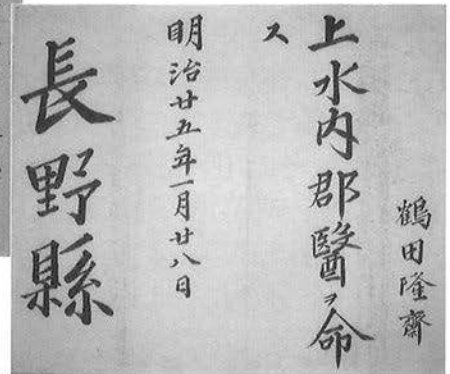 鶴田隆齋
上水内郡醫ヲ命
ス
明治廿五年一月廿八日
長野縣